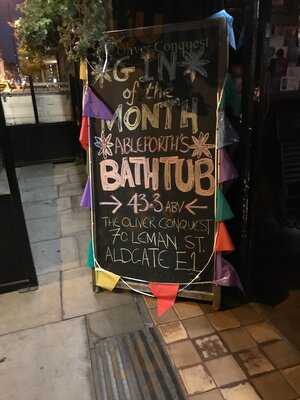 The Oliver Conquest
GIN
of the
MONTH
ABLEFORTH'S
BATHTUB
→ 43.3 ABV ←
THE OLIVER CONQUEST
70 LEMAN ST.
ALDGATE E1